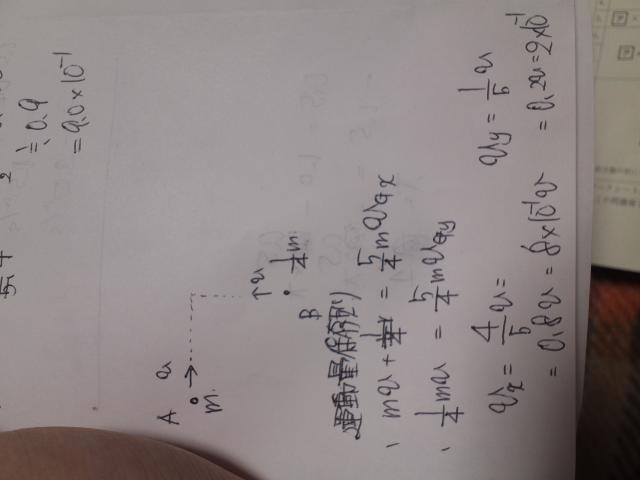 ≒ 0.9
= 9.0×10⁻¹
A m v
B 1/4 m v
運動量保存則
、mv = 5/4 m v_x
、1/4 mv = 5/4 m v_y
v_x = 4/5 v =
= 0.8v = 8×10⁻¹v
v_y = 1/5 v
= 0.2v = 2×10⁻¹